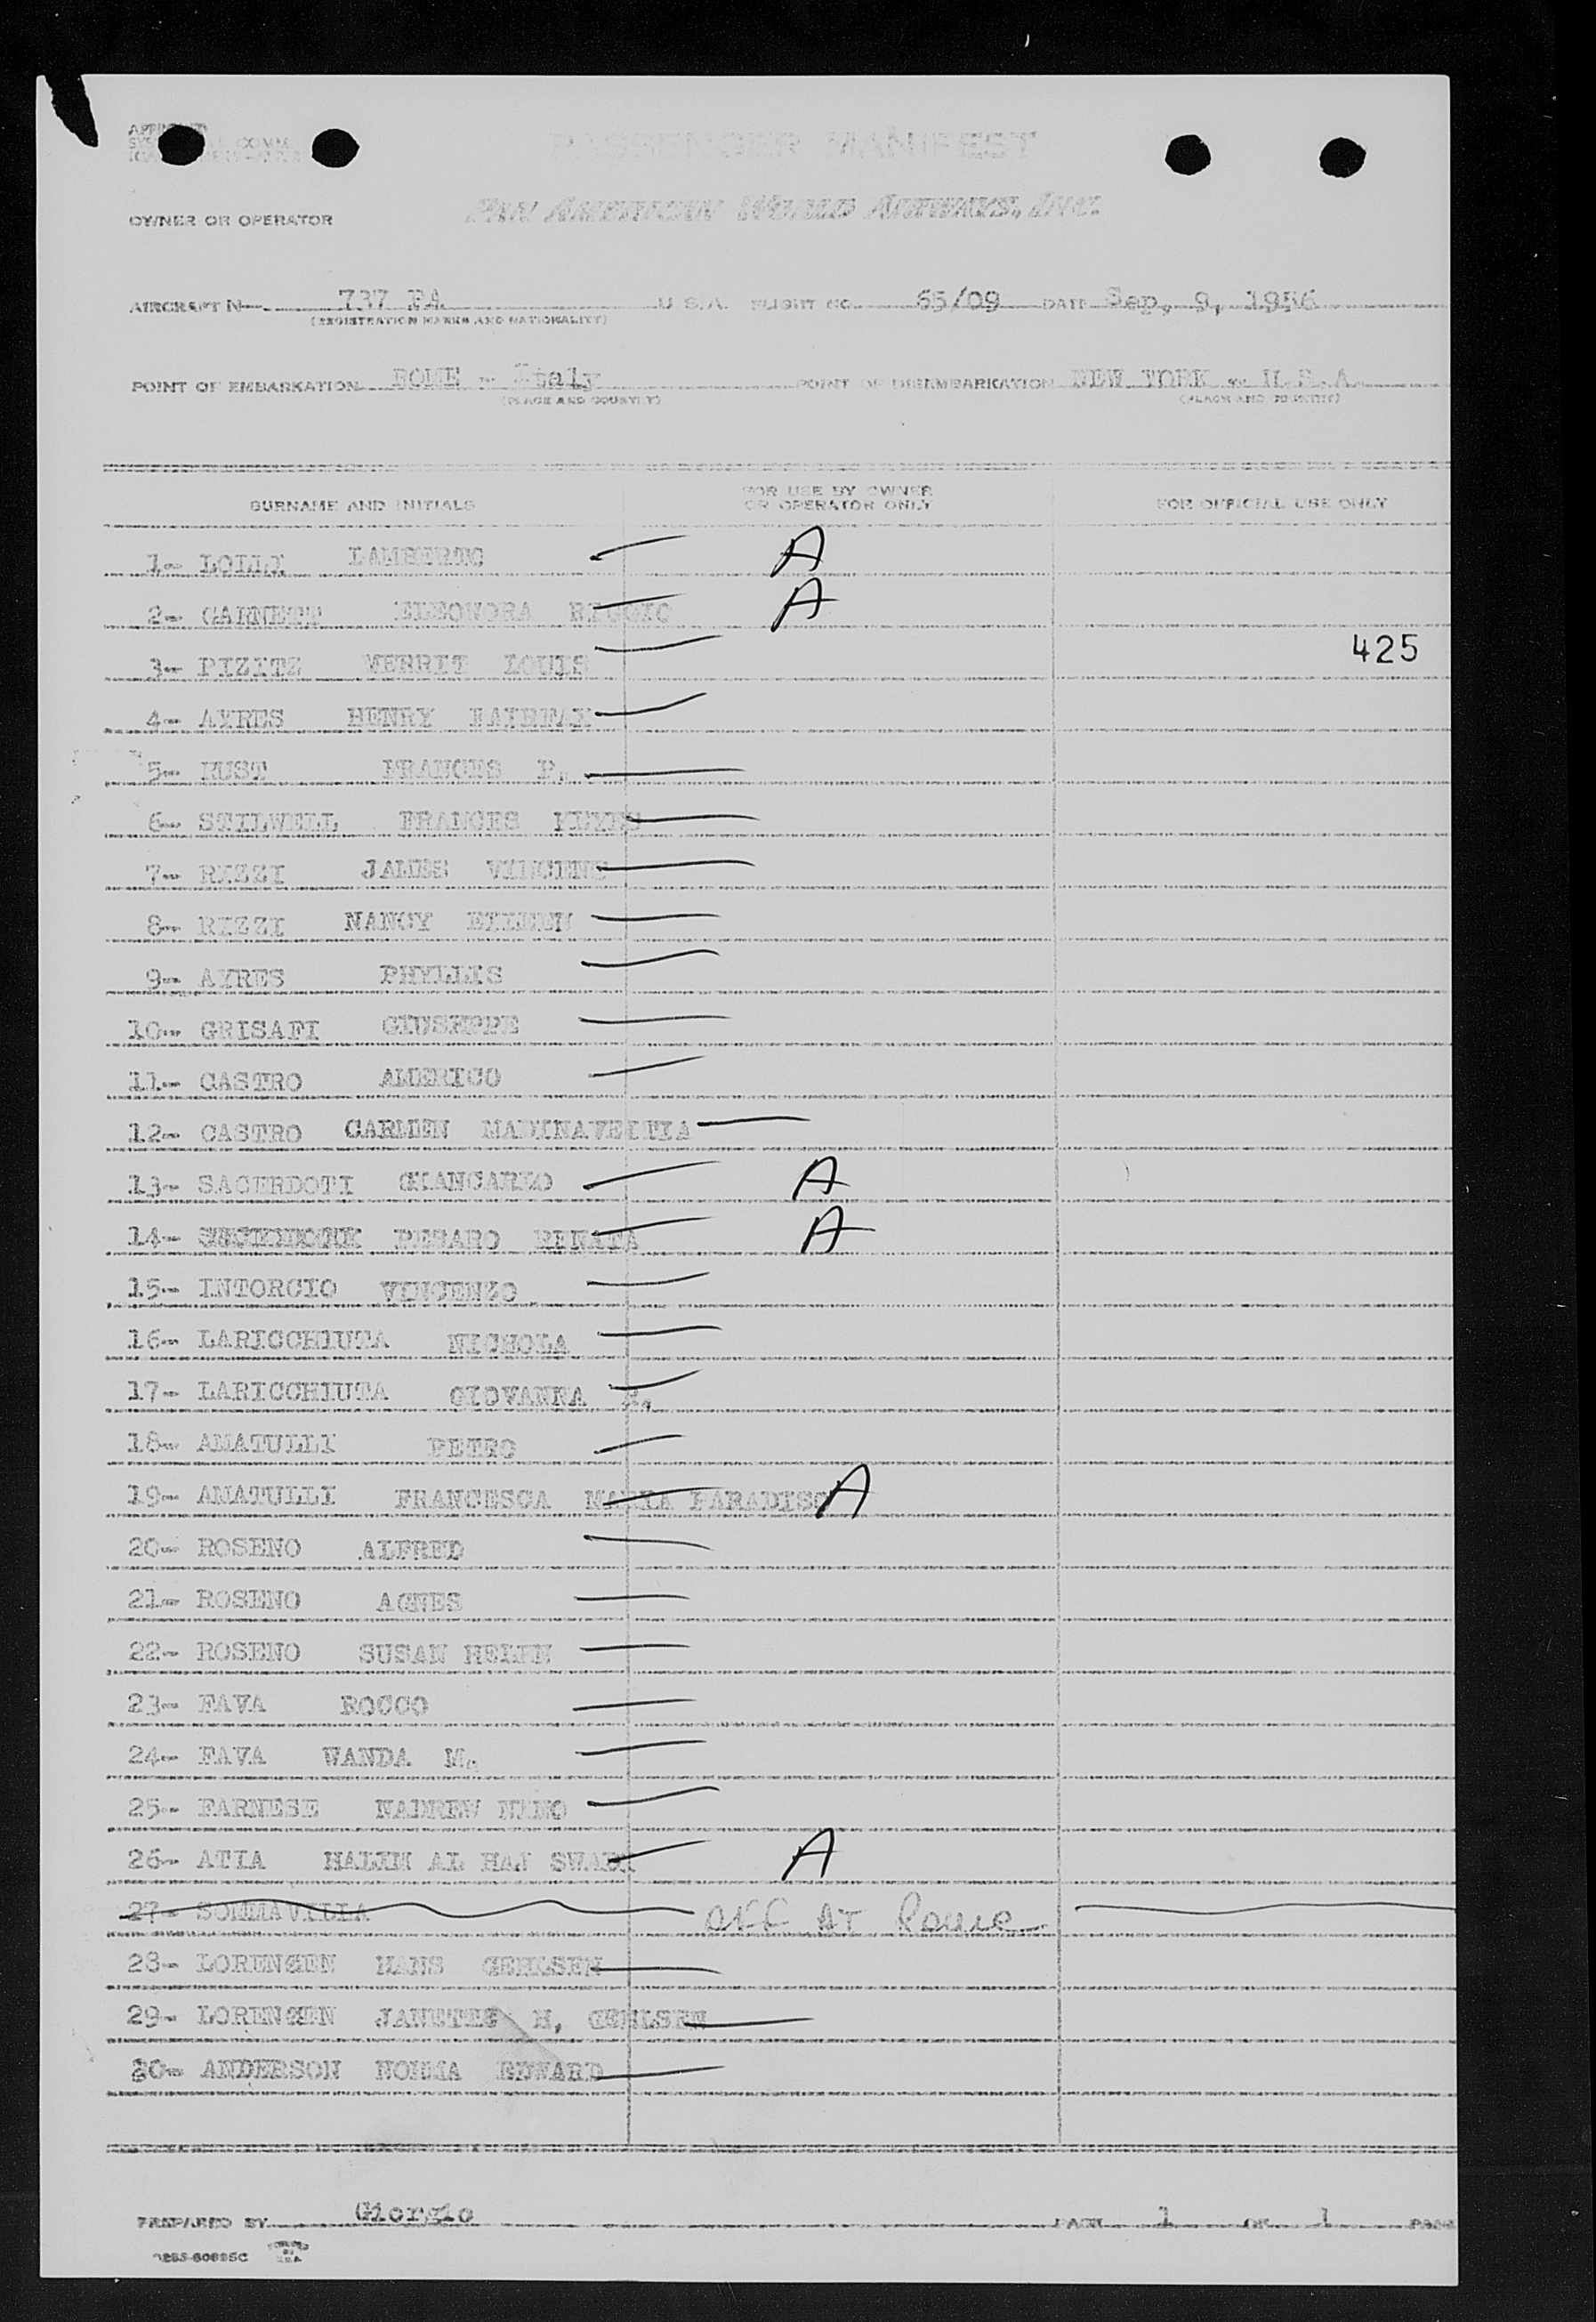 PASSENGER MANIFEST
OWNER OR OPERATOR PAN AMERICAN WORLD AIRWAYS, INC.
AIRCRAFT N 737 PA U.S.A. FLIGHT NO. 65/09 DATE Sep, 9, 1956
(REGISTRATION MARKS AND NATIONALITY)
POINT OF EMBARKATION ROME - Italy POINT OF DISEMBARKATION NEW YORK - U.S.A.
(PLACE AND COUNTRY) (PLACE AND COUNTRY)
SURNAME AND INITIALS FOR USE BY OWNER OR OPERATOR ONLY FOR OFFICIAL USE ONLY
1- LOLLI LAMBERTO A
2- GARNETT ELEONORA A
3- PIZITZ LOUIS 425
4- AYRES HENRY FAIRFAX
5- RUST FRANCES P.
6- STILWELL FRANCES
7- RIZZI JAMES VINCENT
8- RIZZI NANCY EILEEN
9- AYRES PHYLLIS
10- GRISAFI GIUSEPPE
11- CASTRO AMERICO
12- CASTRO CARMEN MADINAVEITIA
13- SACERDOTI GIANCARLO A
14- PESARO RENATA A
15- INTORCIO VINCENZO
16- LARICCHIUTA NICHOLA
17- LARICCHIUTA GIOVANNA
18- AMATULLI PETRO
19- AMATULLI FRANCESCA MARIA PARADISO A
20- ROSENO ALFRED
21- ROSENO AGNES
22- ROSENO SUSAN HELEN
23- FAVA ROCCO
24- FAVA WANDA M.
25- FARNESE NADREW NINO
26- ATIA HALIM AL HAJ A
27- SOMMAVILLA OFF AT Rome
28- LORENZEN HANS GEHLSEN
29- LORENZEN H, GEHLSEN
30- ANDERSON NORMA EDWARD
PREPARED BY Giorgio PAGE 1 OF 1 PAGES